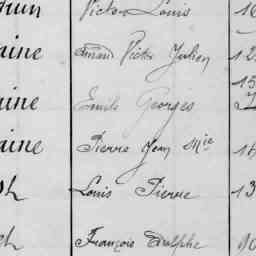 Victor Louis 16
aine Armand Victor Julien 12
15
aine Emile Georges
aine Pierre Jean Mie 16
Louis Pierre 13
François Adolphe